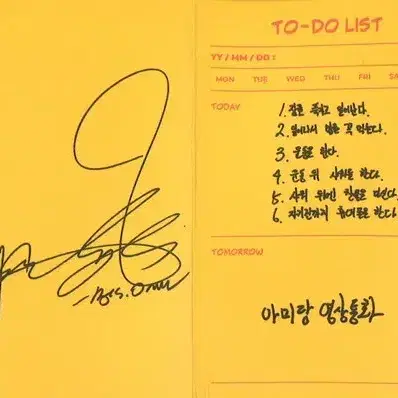 TO-DO LIST
YY / MM / DD :
MON TUE WED THU FRI
TODAY
1. 잠을 푹자고 일어난다.
2. 일어나서 밥을 꼭 먹는다.
3. 운동을 한다.
4. 운동 뒤 샤워를 한다.
5. 샤워 뒤엔
6. 자기전까지 휴대폰을 한다
TOMORROW
아미랑 영상통화